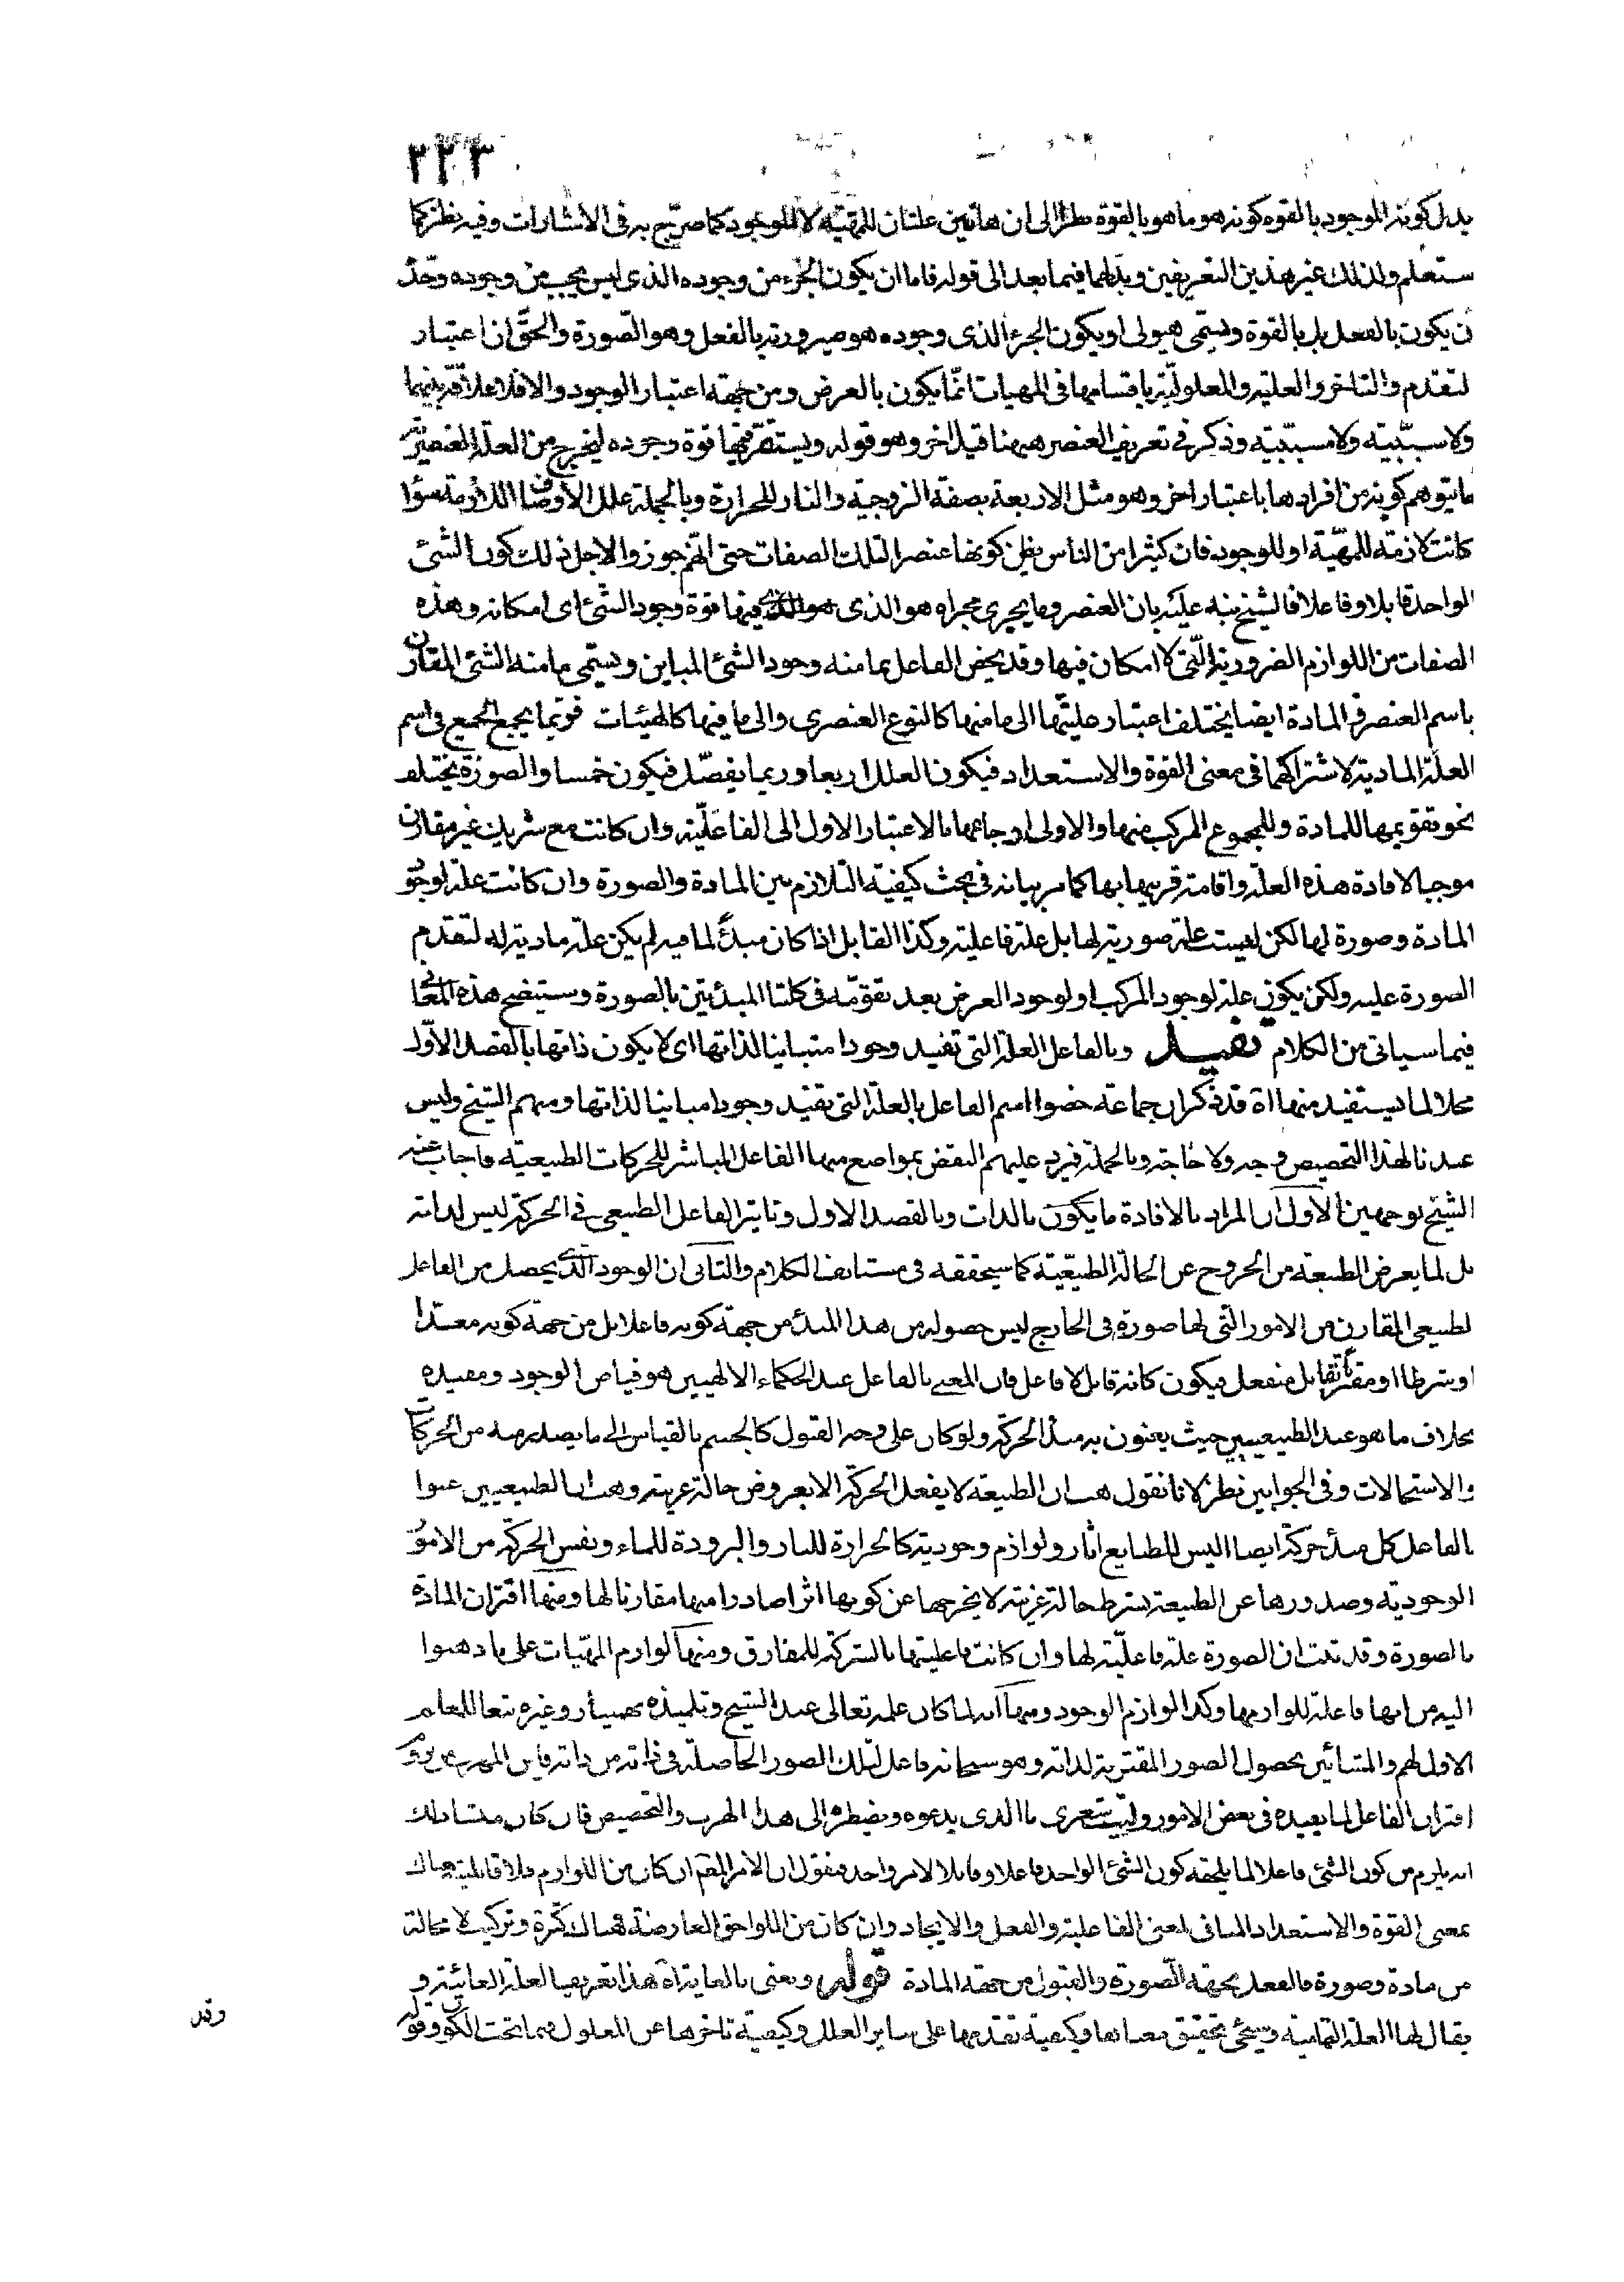 ٢٢٣
بدل كونه الموجود بالقوه كونه هو ما هو بالقوة نظرا الى ان هاتين علتان للمهيّة لا للوجود كما صرّح به فى الاشارات وفيه نظر كما
ستعلم ولذلك غير هذين التعريفين وبدلهما فيما بعد الى قوله فاما ان يكون الجزء من وجوده الذى ليس يجب من وجوده وحده
ن يكون بالفعل بل بالقوة ويسمّى هيولى او يكون الجزء الذى وجوده هو صيرورته بالفعل وهو الصّورة والحقّ ان اعتبار
لتقدم والتاخر والعلية والمعلوليّة باقسامها فى المهيات انّما يكون بالعرض ومن جهة اعتبار الوجود والا فلا علاقة بينهما
ولا سببيّة ولا مسبّبيّة وذكر فى تعريف العنصر ههنا قيد اخر وهو قوله ويستقر فيها قوة وجوده ليخرج من العلة العنصريّة
ما يتوهم كونه من افرادها باعتبار اخر وهو مثل الاربعة بصفة الزوجية والنار للحرارة وبالجملة علل الاوصاف اللازمة سواء
كانت لازمة للمهيّة او للوجود فان كثيرا من الناس يظن كونها عنصرا لتلك الصفات حتى انّهم جوزوا لاجل ذلك كون الشئ
الواحد قابلا وفاعلا فالشيخ نبه عليه بان العنصر وما يجرى مجراه هو الذى فيها قوة وجود الشئ اى امكانه وهذه
الصفات من اللوازم الضرورية الّتى لا امكان فيها وقد يخص الفاعل بما منه وجود الشئ المباين ويسمّى ما منه الشئ المقارن
باسم العنصر فى المادة ايضا يختلف اعتبار عليتّها الى ما منها كالنوع العنصرى والى ما فيها كالهيئات فربّما يجمع الجميع فى اسم
العلة المادية لاشتراكهما فى معنى القوة والاستعداد فيكون العلل اربعا وربما يفصّل فيكون خمسا والصورة يختلف
نحو تقويمها للمادة وللمجموع المركب منها والاولى ارجاعها بالاعتبار الاول الى الفاعليّة وان كانت مع شريك غير مقارن
موجبا لافادة هذه العلة واقامة قرينها بها كما مر بيانه فى بحث كيفية التلازم بين المادة والصورة وان كانت علة لوجود
المادة وصورة لها لكن ليست علة صورية لها بل علة فاعلية وكذا القابل اذا كان مبدأ لما فيه لم يكن علة مادية له لتقدم
الصورة عليه ولكن يكون علة لوجود المركب او لوجود العرض بعد تقوّمه فى كلتا المبدئيتين بالصورة وستتضح هذه المعانى
فيما سياتى من الكلام وبالفاعل العلة التى تفيد وجودا متباينا لذاتها اى لا يكون ذاتها بالقصد الاوّل
محلا لما يستفيد منها اه قد ذكر ان جماعة خصوا اسم الفاعل بالعلة التى تفيد وجودا مباينا لذاتها ومنهم الشيخ وليس
عندنا لهذا التخصيص وجه ولا حاجة وبالجملة فيرد عليهم النقض بمواضع منها الفاعل المباشر للحركات الطبيعية فاجاب عنه
الشيخ بوجهين الاول ان المراد بالافادة ما يكون بالذات وبالقصد الاول وتاثير الفاعل الطبيعى فى الحركة ليس لذاته
بل لما يعرض الطبيعة من الخروج عن الحالة الطبيعيّة كما سيحققه فى مستانف الكلام والثانى ان الوجود الذى يحصل من الفاعل
لطبيعى المقارن من الامور التى لها صورة فى الخارج ليس حصوله من هذا المبدأ من جهة كونه فاعلا بل من جهة كونه معدّا
او شرطا او مقترنا بقابل منفعل فيكون كانه قابل لا فاعل فان المعنى بالفاعل عند الحكماء الالهيين هو فياض الوجود ومفيده
بخلاف ما هو عند الطبيعيين حيث يعنون به مبدأ الحركة ولو كان على وجه القبول كالجسم بالقياس الى ما يصدر منه من الحركات
والاستحالات وفى الجوابين نظر لانا نقول هب ان الطبيعة لا يفعل الحركة الا بعروض حالة غريبة وهب ان الطبيعيين عنوا
بالفاعل كل مبدأ حركة ايضا اليس للطبايع اثار ولوازم وجودية كالحرارة للنار والبرودة للماء ونفس الحركة من الامور
الوجودية وصدورها عن الطبيعة بشرط حالة غريبة لا يخرجها عن كونها اثرا صادرا منها مقارنا لها ومنها اقتران المادة
بالصورة وقد ثبت ان الصورة علة فاعليّة لها وان كانت فاعليتها بالشركة للمفارق ومنها لوازم المهيّات على ما ذهبوا
اليه من انها فاعلة للوازمها وكذا لوازم الوجود ومنها انه لما كان علمه تعالى عند الشيخ وتلميذه بهمنيار وغيره تبعا للمعلم
الاول لهم والمشائين بحصول الصور المقترنة لذاته وهو سبحانه فاعل لتلك الصور الحاصلة فى ذاته من ذاته فاين المهرب عن لزوم
اقتران الفاعل لما يفيده فى بعض الامور وليت شعرى ما الذى يدعوه ويضطره الى هذا الهرب والتخصيص فان كان منشا ذلك
انه يلزم من كون الشئ فاعلا لما يلحقه كون الشئ الواحد فاعلا وقابلا لامر واحد فنقول ان الامر اللاحق ان كان من اللوازم فلا قابلية هناك
بمعنى القوة والاستعداد المنافى لمعنى الفاعلية والفعل والايجاد وان كان من اللواحق العارضة فهناك كثرة وتركيب لا محالة
من مادة وصورة فالفعل بجهة الصّورة والقبول من جهة المادة قوله ونعنى بالغاية اه هذا تعريف العلة الغائية و
يقال لها العلة التمامية وسيجئ تحقيق معناها وكيفية تقدمها على ساير العلل وكيفية تاخرها عن المعلول فيما تحت الكون وقوله
وقد